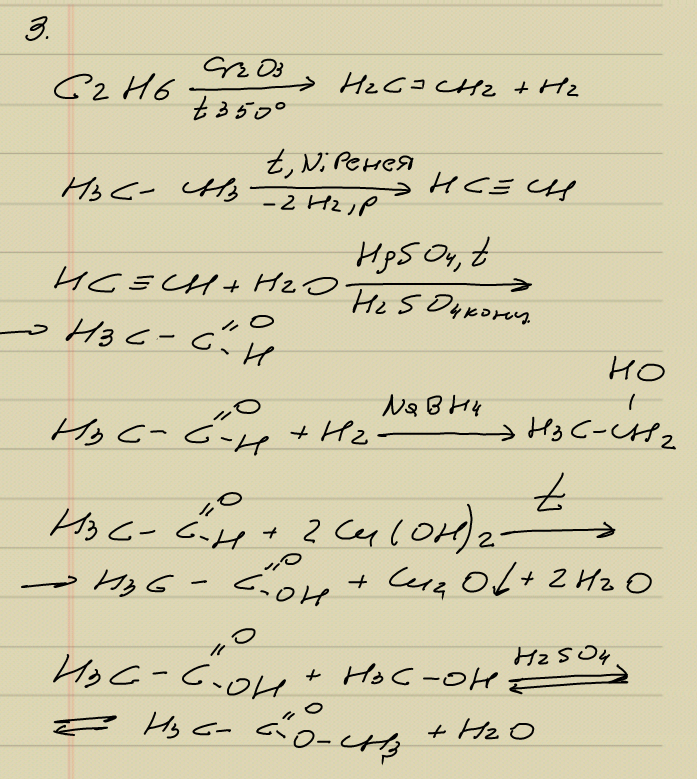 3.
C2H6 Cr2O3 t 350° → H2C=CH2 + H2
H3C-CH3 t, Ni Ренея -2H2, p → HC≡CH
HC≡CH + H2O HgSO4, t H2SO4 конц. →
→ H3C-C=O-H
H3C-C=O-H + H2 NaBH4 → H3C-CH2 HO
H3C-C=O-H + 2Cu(OH)2 t →
→ H3C-C=O-OH + Cu2O↓ + 2H2O
H3C-C=O-OH + H3C-OH H2SO4 ⇌
⇌ H3C-C=O-O-CH3 + H2O